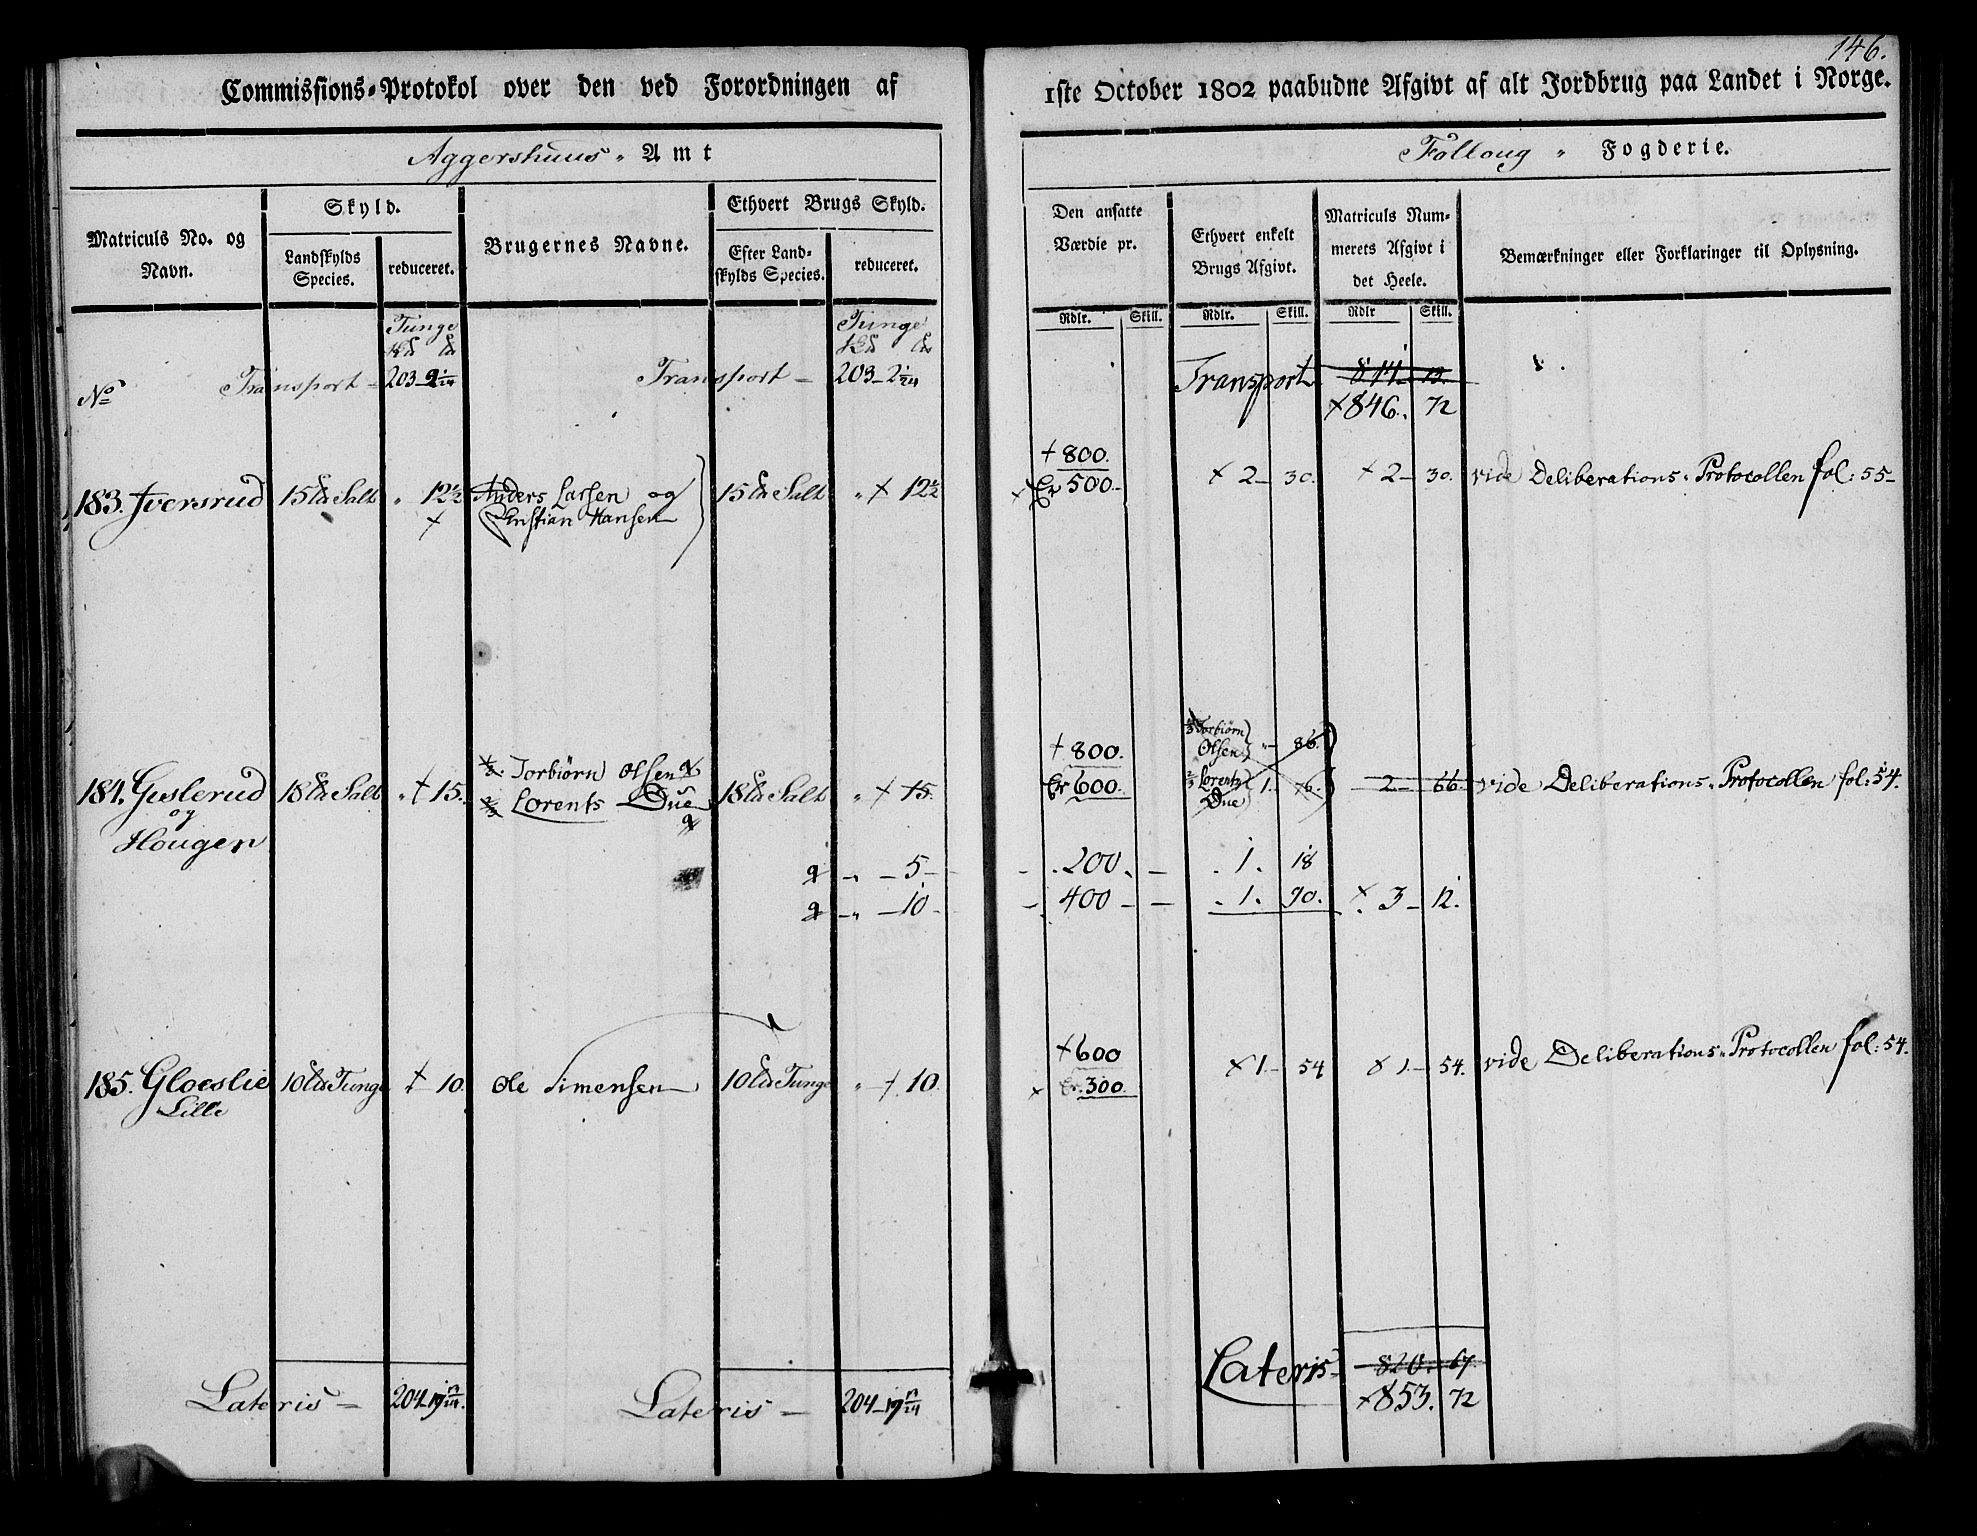 146.
Commissions-Protokol over den ved Forordningen af
1ste October 1802 paabudne Afgivt af alt Jordbrug paa Landet i Norge.
Aggershuus Amt
Folloug Fogderie.
Matriculs No. og Navn.
Skyld.
Landskylds Species.
reduceret.
Brugernes Navne.
Ethvert Brugs Skyld.
Efter Landskylds Species.
reduceret.
Den ansatte Værdie pr.
Ethvert enkelt Brugs Afgivt.
Matriculs Nummerets Afgivt i det Heele.
Bemærkninger eller Forklaringer til Oplysning.
Rdlr. Skill. Rdlr. Skill. Rdlr Skill.
Tunge Tunge
No Transport - 203 - 2 1/24 Transport - 203 - 2 1/24 Transport 814 - 12.
× 846. 72
+ 800.
183. Iversrud 15 Salt " 12½ Anders Larsen og 15 Salt " × 12½ 500. × 2 - 30. × 2 - 30. vide Deliberations-Protocollen fol: 55-
Christian Hansen
+ 800. Torbiörn Olsen " 86.
184. Geslerud 18 Salt " + 15. 1/3. Torbiörn Olsen 18 Salt " + 15. 600. 2/3 Lorents Due 1. 76. 2 - 66. vide Deliberations-Protocollen fol: 54.
og 2/3 Lorents Due
Hougen
" 5 - 200. 1. 18
" 10 - 400 1. 90. × 3 - 12.
+ 600
185. Gloeslie 10 Tunge + 10. Ole Simensen 10 Tunge " + 10. 300. × 1 - 54 × 1 - 54. vide Deliberations-Protocollen fol: 54.
Lille
Lateris - 820. 67.
Lateris - 204 - 19 17/24. Lateris - 204 - 19 17/24 × 853. 72